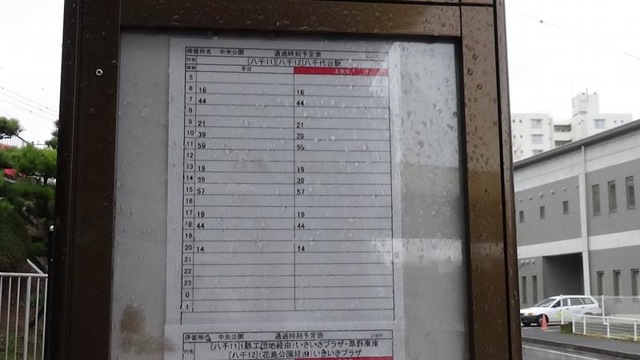 停留所名 中央公園 通過時刻予定表
行先 [八千11][八千12]八千代台駅
平日
5
6 16 16
7 44 44
8
9 21 21
10 39 39
11 59 59
12
13 19 19
14 39 39
15 57 57
16
17 19 19
18 44 44
19
20 14 14
21
22
23
0
1
停留所名 中央公園 通過時刻予定表
行先 [八千11](鉄工団地経由)いきいきプラザ・島野車庫
[八千12](花島公園経由)いきいきプラザ